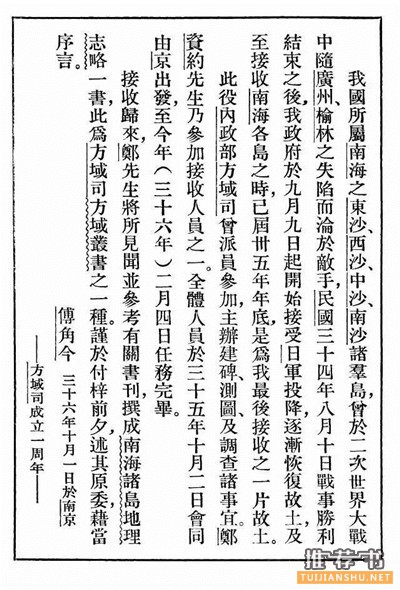 我國所屬南海之東沙、西沙、中沙、南沙諸羣島，曾於二次世界大戰
中隨廣州、榆林之失陷而淪於敵手，民國三十四年八月十日戰事勝利
結束之後，我政府於九月九日起開始接受日軍投降，逐漸恢復故土，及
至接收南海各島之時，已屆卅五年年底，是爲我最後接收之一片故土。
此役內政部方域司曾派員參加，主辦建碑、測圖及調查諸事宜。鄭
資約先生乃參加接收人員之一。全體人員於三十五年十月二日會同
由京出發，至今年（三十六年）二月四日任務完畢。
接收歸來，鄭先生將所見聞並參考有關書刊，撰成南海諸島地理
志略一書，此爲方域司方域叢書之一種。謹於付梓前夕，述其原委，藉當
序言。
傅角今 三十六年十月一日於南京
——方域司成立一周年——
推荐书
TUIJIANSHU.NET